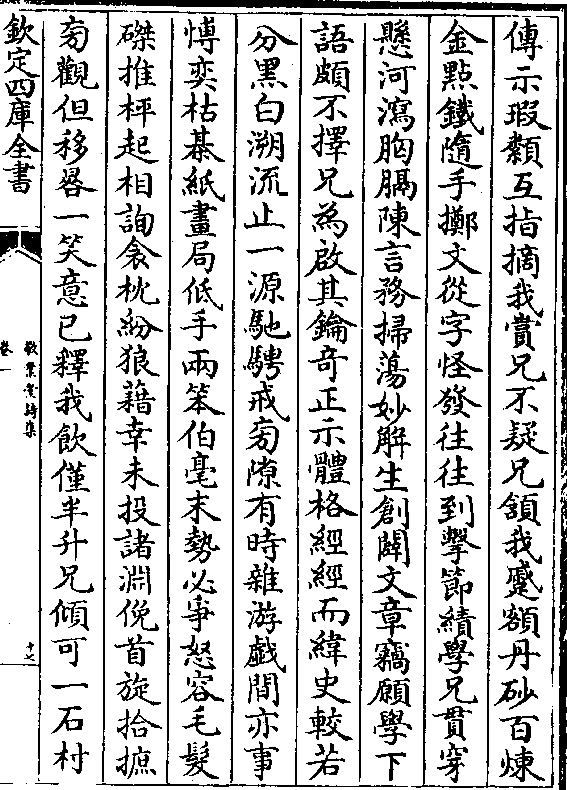 傳示瑕纇互指摘我賞兄不疑兄頷我蹙額丹砂百煉
金㸃鐵隨手擲文從字怪發往往到擊節績學兄貫穿
懸河瀉胸膈陳言務掃蕩妙解生創闢文章竊願學下
語頗不擇兄為啟其鑰奇正示體格經經而緯史較若
分黑白溯流止一源馳騁戒旁隙有時雜游戯間亦事
愽奕枯棊紙畫局低手兩笨伯毫末勢必爭怒容毛髮
磔推枰起相詢衾枕紛狼藉幸未投諸淵俛首旋拾摭
旁觀但移晷一笑意已釋我飲僅半升兄傾可一石村
欽定四庫全書
敬業堂詩集
卷一
十七